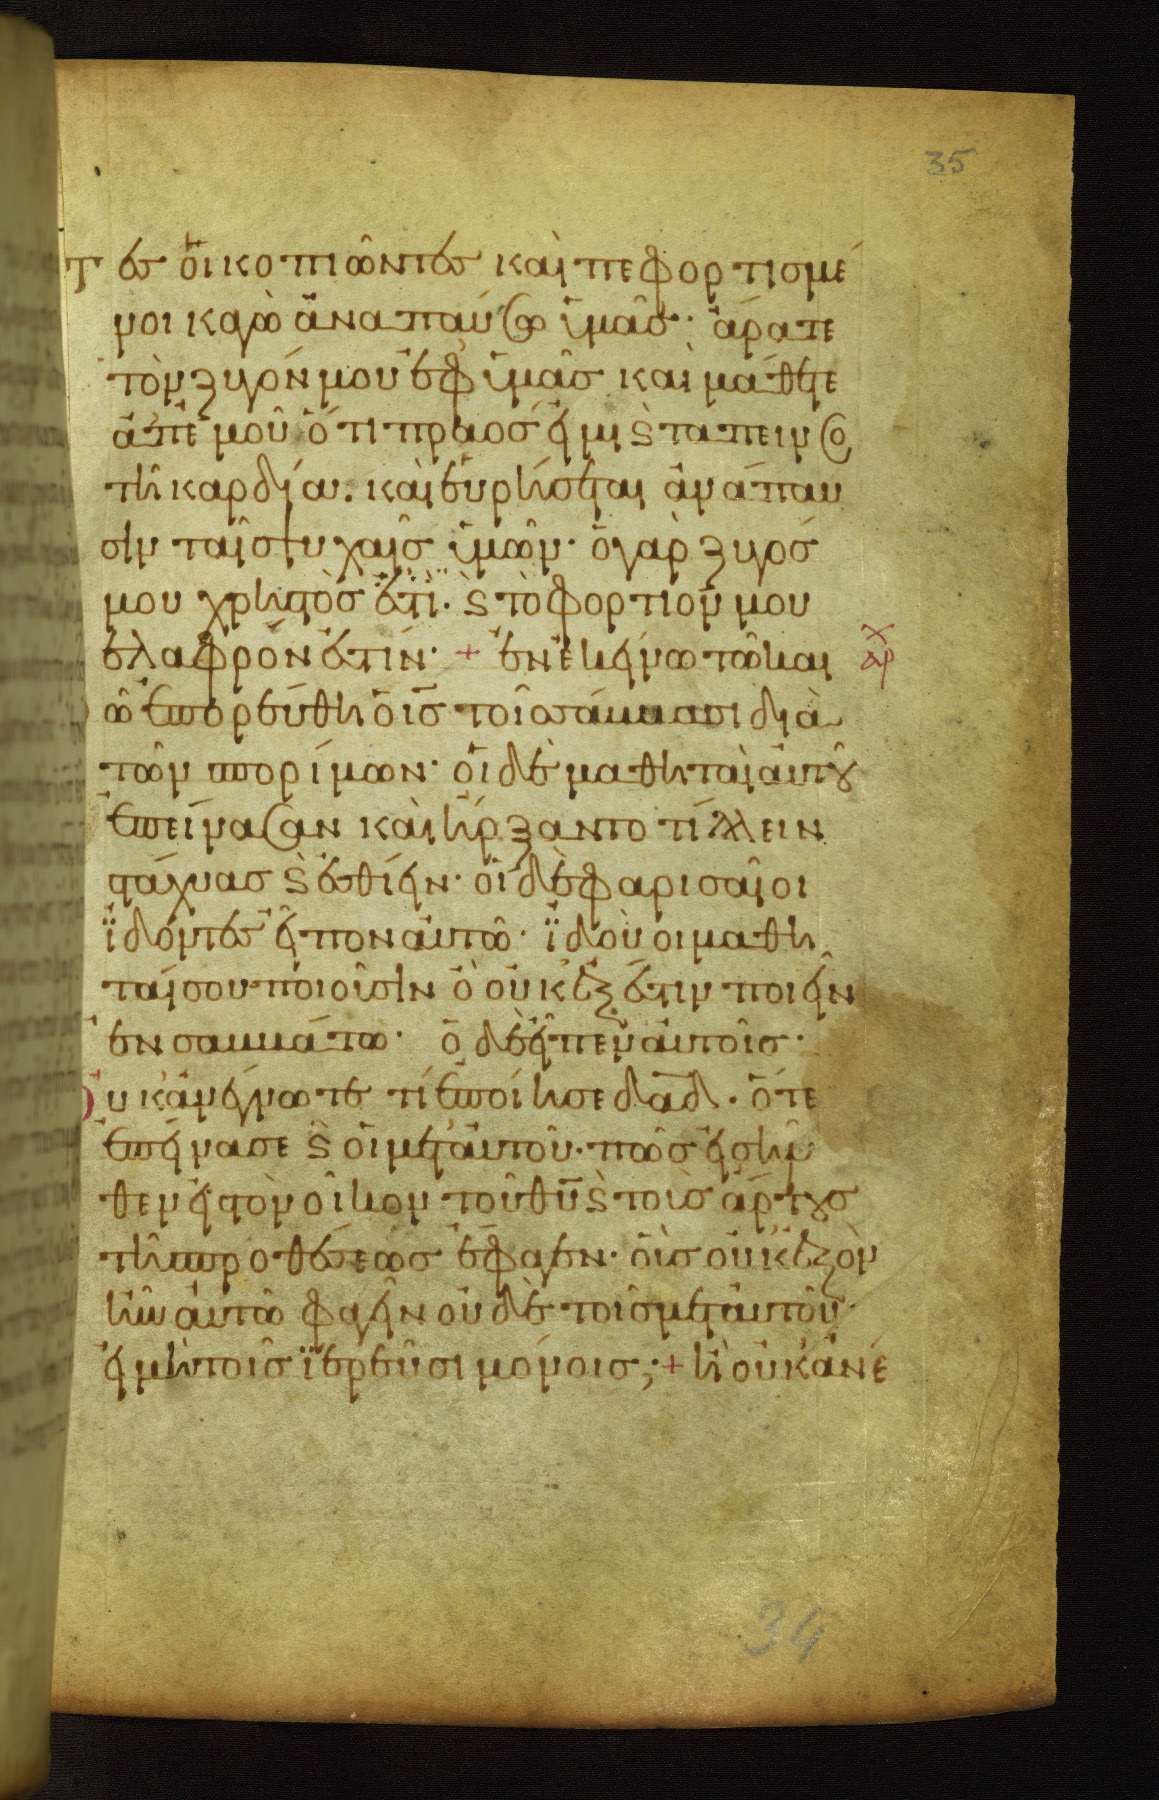 35
τες οἱ κοπιῶντες καὶ πεφορτισμέ
νοι καγὼ ἀναπαύσω ὑμᾶς· ἄρατε
τὸν ζυγόν μου ἐφ ὑμᾶς καὶ μάθετε
ἀπ ἐμοῦ ὅτι πραος εἰμι ϛ ταπεινὸ
τῆ καρδία. καὶ εὑρήσεται ἀνάπαυ
σιν ταῖς ψυχαῖς ὑμῶν· ὁ γαρ ζυγός
μου χρηστὸς ἐστϊ. ϛ τὸ φορτιον μου
ἐλαφρόν ἐστιν· + ἐν ἐκείνω τῶ και
χ
αρ
ῶ ἐπορεύθη ὁ ις τοῖς σάββασι διὰ
τῶν σπορίμων· οἱ δὲ μαθηταὶ αυτȣ
ἐπείνασαν καὶ ἤρξαντο τίλλειν
στάχυας ϛ ἐσθίειν· οἱ δὲ φαρισαῖοι
ϊδόντες εἶπον αυτῶ· ϊδοὺ οι μαθη
ταί σου ποιοῦσιν ὃ οὐκ ἔξεστιν ποιεῖν
ἐν σαββάτω· ὁ δὲ εἶπεν αυτοῖς·
Ουκ ἀνέγνωτε τί ἐποίησε δαδ. ὅτε
ἐπείνασε ϛ οἱ μετ αυτοῦ· πῶς εἰσῆλ
θεν εἰς τὸν οἶκον τοῦ θυ ϛ τοὺς ἄρτȣς
τῆς προθέσεως ἔφαγεν· οἷς οὐκ ἐξὸν
ἦν αυτῶ φαγεῖν οὐδὲ τοῖς μετ αυτοῦ·
εἰ μὴ τοῖς ϊερεῦσι μόνοις; + ἢ οὐκ ἀνέ
34